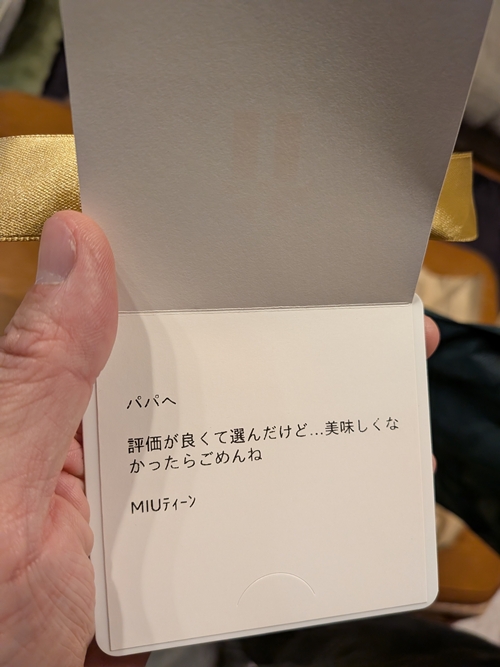 パパへ
評価が良くて選んだけど...美味しくな
かったらごめんね
MIUﾃｨｰﾝ